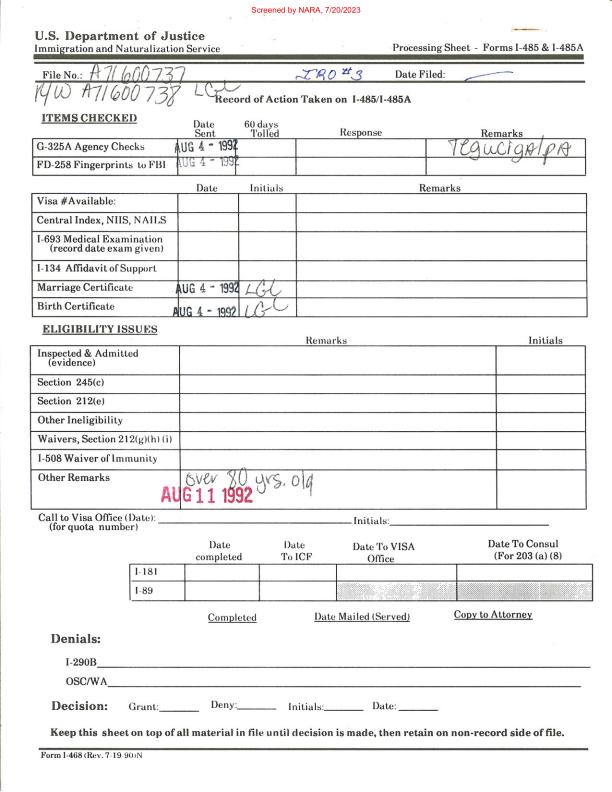 Screened by NARA, 7/20/2023
U.S. Department of Justice
Immigration and Naturalization Service
Processing Sheet - Forms I-485 & I-485A
File No.: A71600737 IRO #3 Date Filed:
14W A71600738 LGL
Record of Action Taken on I-485/I-485A
ITEMS CHECKED
Date Sent 60 days Tolled Response Remarks
G-325A Agency Checks AUG 4 - 1992 Tegucigalpa
FD-258 Fingerprints to FBI AUG 4 - 1992
Date Initials Remarks
Visa #Available:
Central Index, NIIS, NAILS
I-693 Medical Examination
(record date exam given)
I-134 Affidavit of Support
Marriage Certificate AUG 4 - 1992 LGL
Birth Certificate AUG 4 - 1992 LGL
ELIGIBILITY ISSUES
Remarks Initials
Inspected & Admitted
(evidence)
Section 245(c)
Section 212(e)
Other Ineligibility
Waivers, Section 212(g)(h)(i)
I-508 Waiver of Immunity
Other Remarks over 80 yrs. old
AUG 11 1992
Call to Visa Office (Date): Initials:
(for quota number)
Date completed Date To ICF Date To VISA Office Date To Consul (For 203 (a) (8)
I-181
I-89
Completed Date Mailed (Served) Copy to Attorney
Denials:
I-290B
OSC/WA
Decision: Grant: Deny: Initials: Date:
Keep this sheet on top of all material in file until decision is made, then retain on non-record side of file.
Form I-468 (Rev. 7-19-90)N